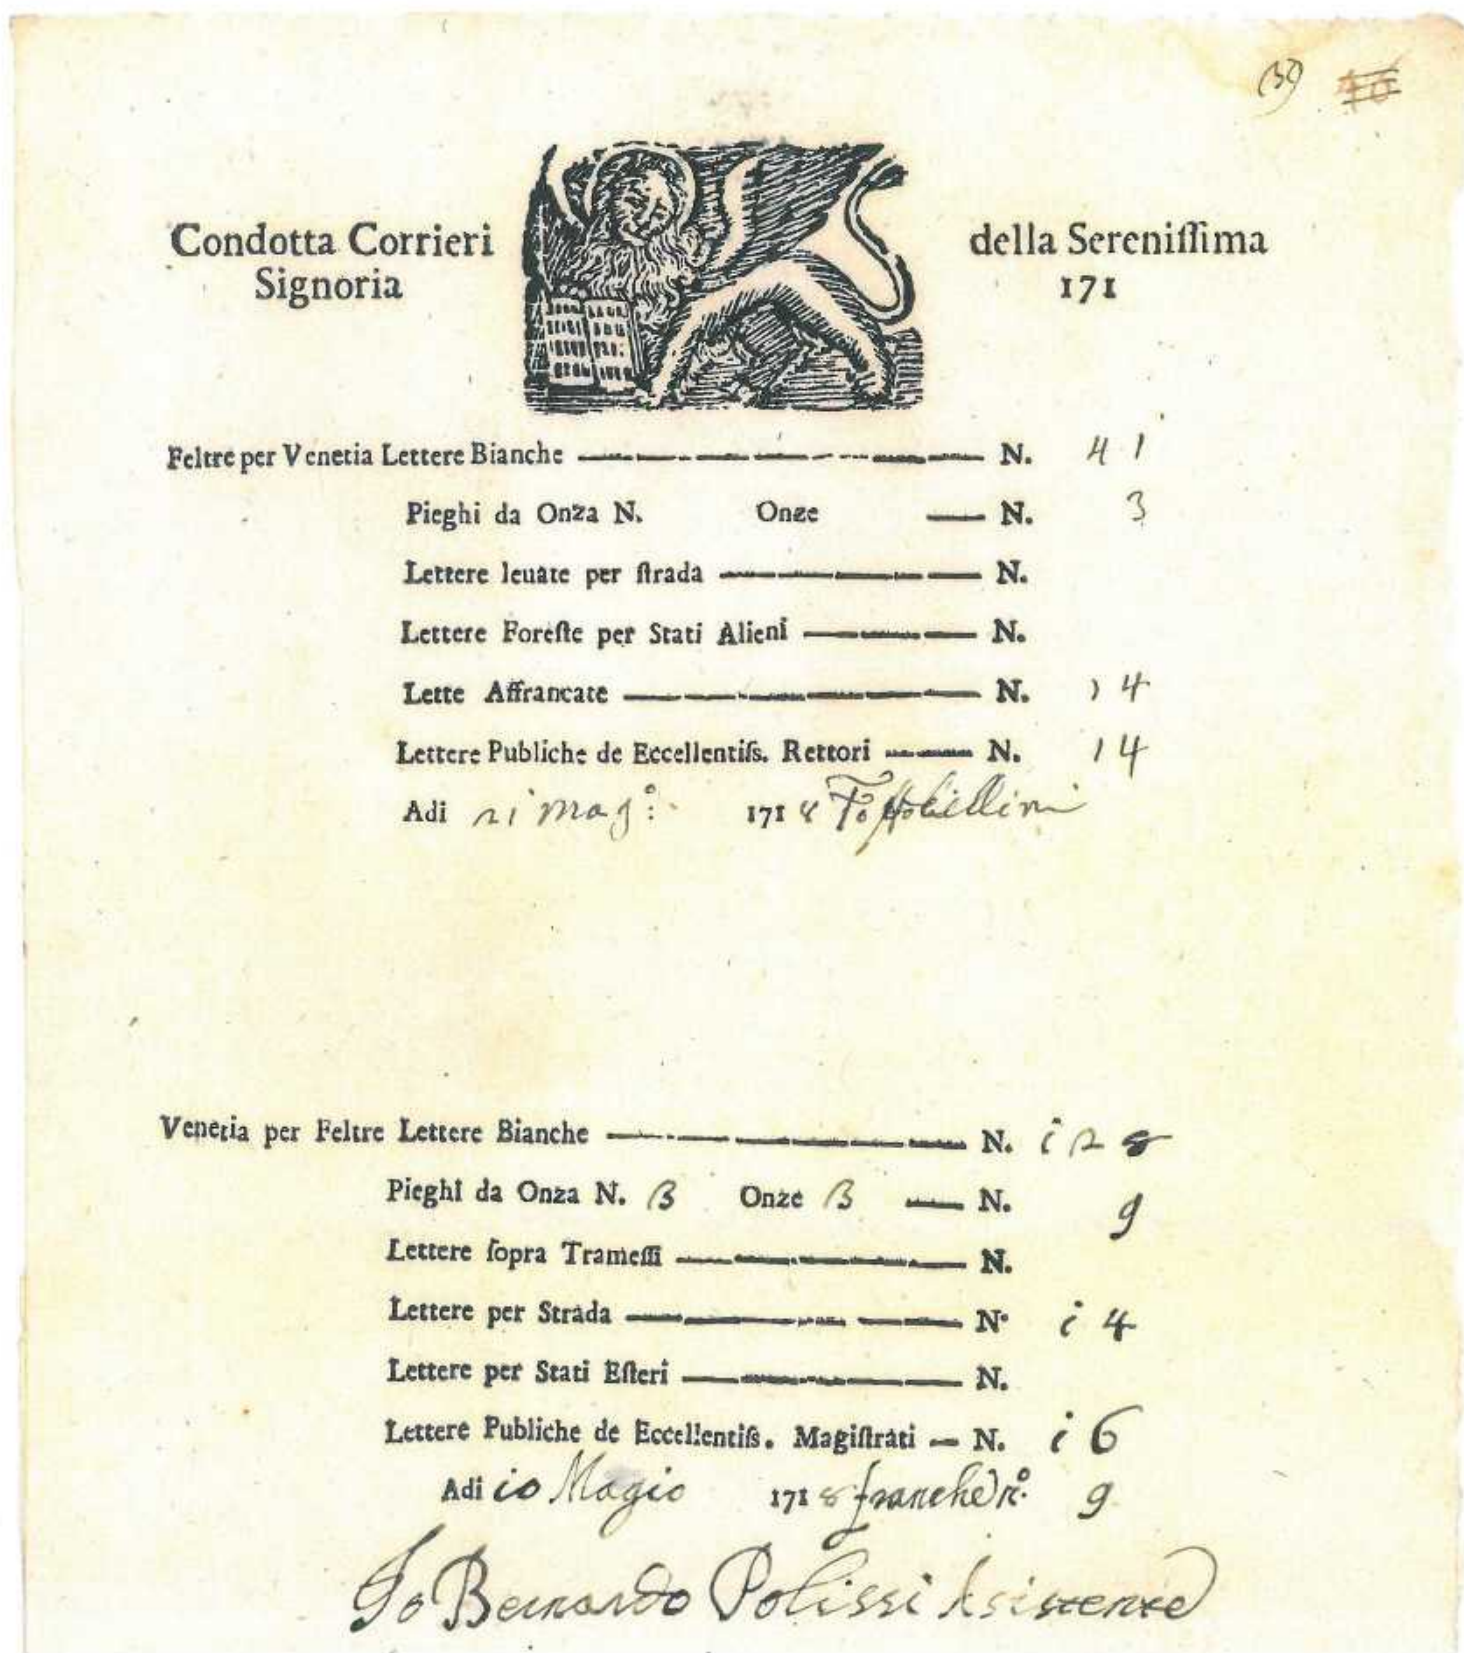 Condotta Corrieri della Sereniſſima
Signoria 171
Feltre per Venetia Lettere Bianche N. 41
Pieghi da Onza N. Onze N. 3
Lettere leuate per ſtrada N.
Lettere Foreſte per Stati Alieni N.
Lette Affrancate N. 14
Lettere Publiche de Eccellentiſs. Rettori N. 14
Adi mag:º 1718
Venetia per Feltre Lettere Bianche N. i28
Pieghi da Onza N. 3 Onze 3 N. 9
Lettere ſopra Trameſſi N.
Lettere per Strada N. i4
Lettere per Stati Eſteri N.
Lettere Publiche de Eccellentiſs. Magiſtrati N. i6
Adi io Magio 1718 franche nº. 9
Io Bernardo Polissi Asistente